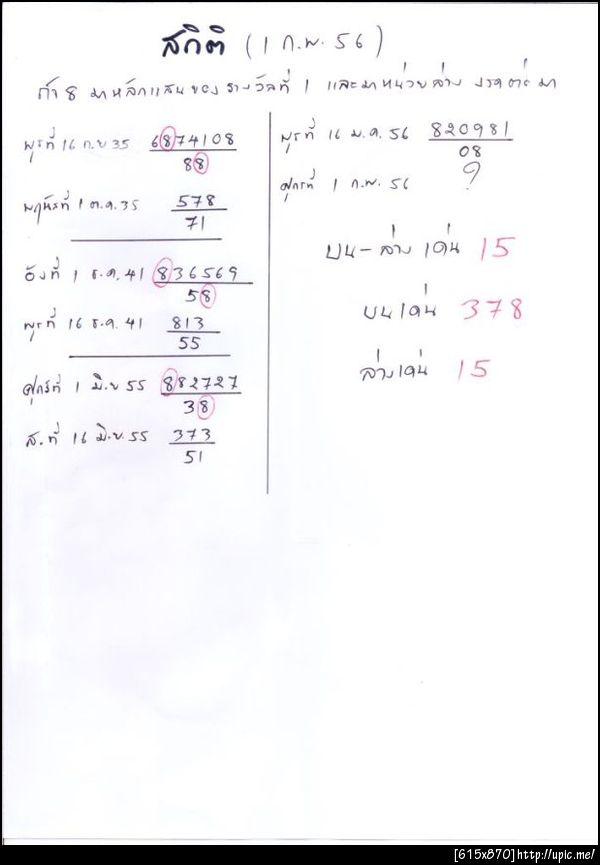 สถิติ (1 ก.พ. 56)
ถ้า 8 มาหลักแสนของรางวัลที่ 1 และมาหน่วยล่าง งวดต่อมา
พุธที่ 16 ก.ย 35 6874108
88
พฤหัสที่ 1 ต.ค. 35 578
71
อังที่ 1 ธ.ค. 41 836569
58
พุธที่ 16 ธ.ค. 41 813
55
ศุกร์ที่ 1 มิ.ย 55 882727
38
ส.ที่ 16 มิ.ย. 55 373
51
พุธที่ 16 ม.ค. 56 820981
08
ศุกร์ที่ 1 ก.พ. 56 ?
บน-ล่าง เด่น 15
บนเด่น 378
ล่างเด่น 15
[615x870]http://upic.me/